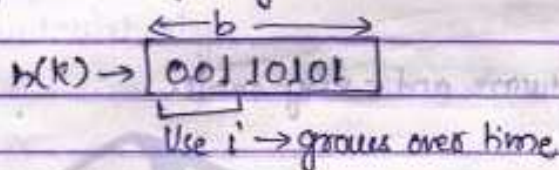 ← b →
h(k) → 00110101
Use i → grows over time